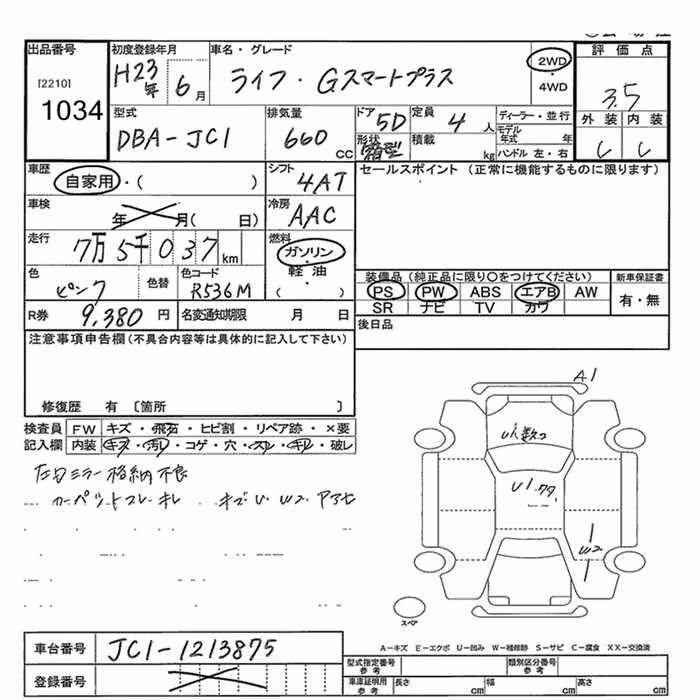 出品番号 初度登録年月 車名・グレード 評価点
[2210] H23年 6月 ライフ・Gスマートプラス 2WD・4WD 3.5
1034 型式 排気量 ドア 定員 ディーラー・並行 外装 内装
DBA-JC1 660cc 5D 4人 モデル年式 年
形状 箱型 積載 kg ハンドル 左・右
車歴 自家用・( ) シフト 4AT セールスポイント (正常に機能するものに限ります)
車検 年 月( 日) 冷房 AAC
走行 7万5千037km 燃料 ガソリン
軽油
( )
色 ピンク 色替 色コード R536M
装備品(純正品に限り○をつけてください) 新車保証書
PS PW ABS エアB AW 有・無
SR ナビ TV カワ
R券 9,380円 名変通知期限 月 日 後日品
注意事項申告欄(不具合内容等は具体的に記入して下さい)
修復歴 有 〔箇所 〕
検査員 FW キズ・飛石・ヒビ割・リペア跡・×要
記入欄 内装 キズ・汚れ・コゲ・穴・スレ・キレ・破レ
左右ミラー格納不良
カーペットスレ・キレ キズ U W2 アアセ
A1
U1数つ
U1
W2
スペア
車台番号 JC1-1213875
登録番号
A-キズ E-エクボ U-凹み W-補修跡 S-サビ C-腐食 XX-交換済
型式指定番号 参考 類別区分番号 参考
車庫証明用 参考 長さ cm 幅 cm 高さ cm